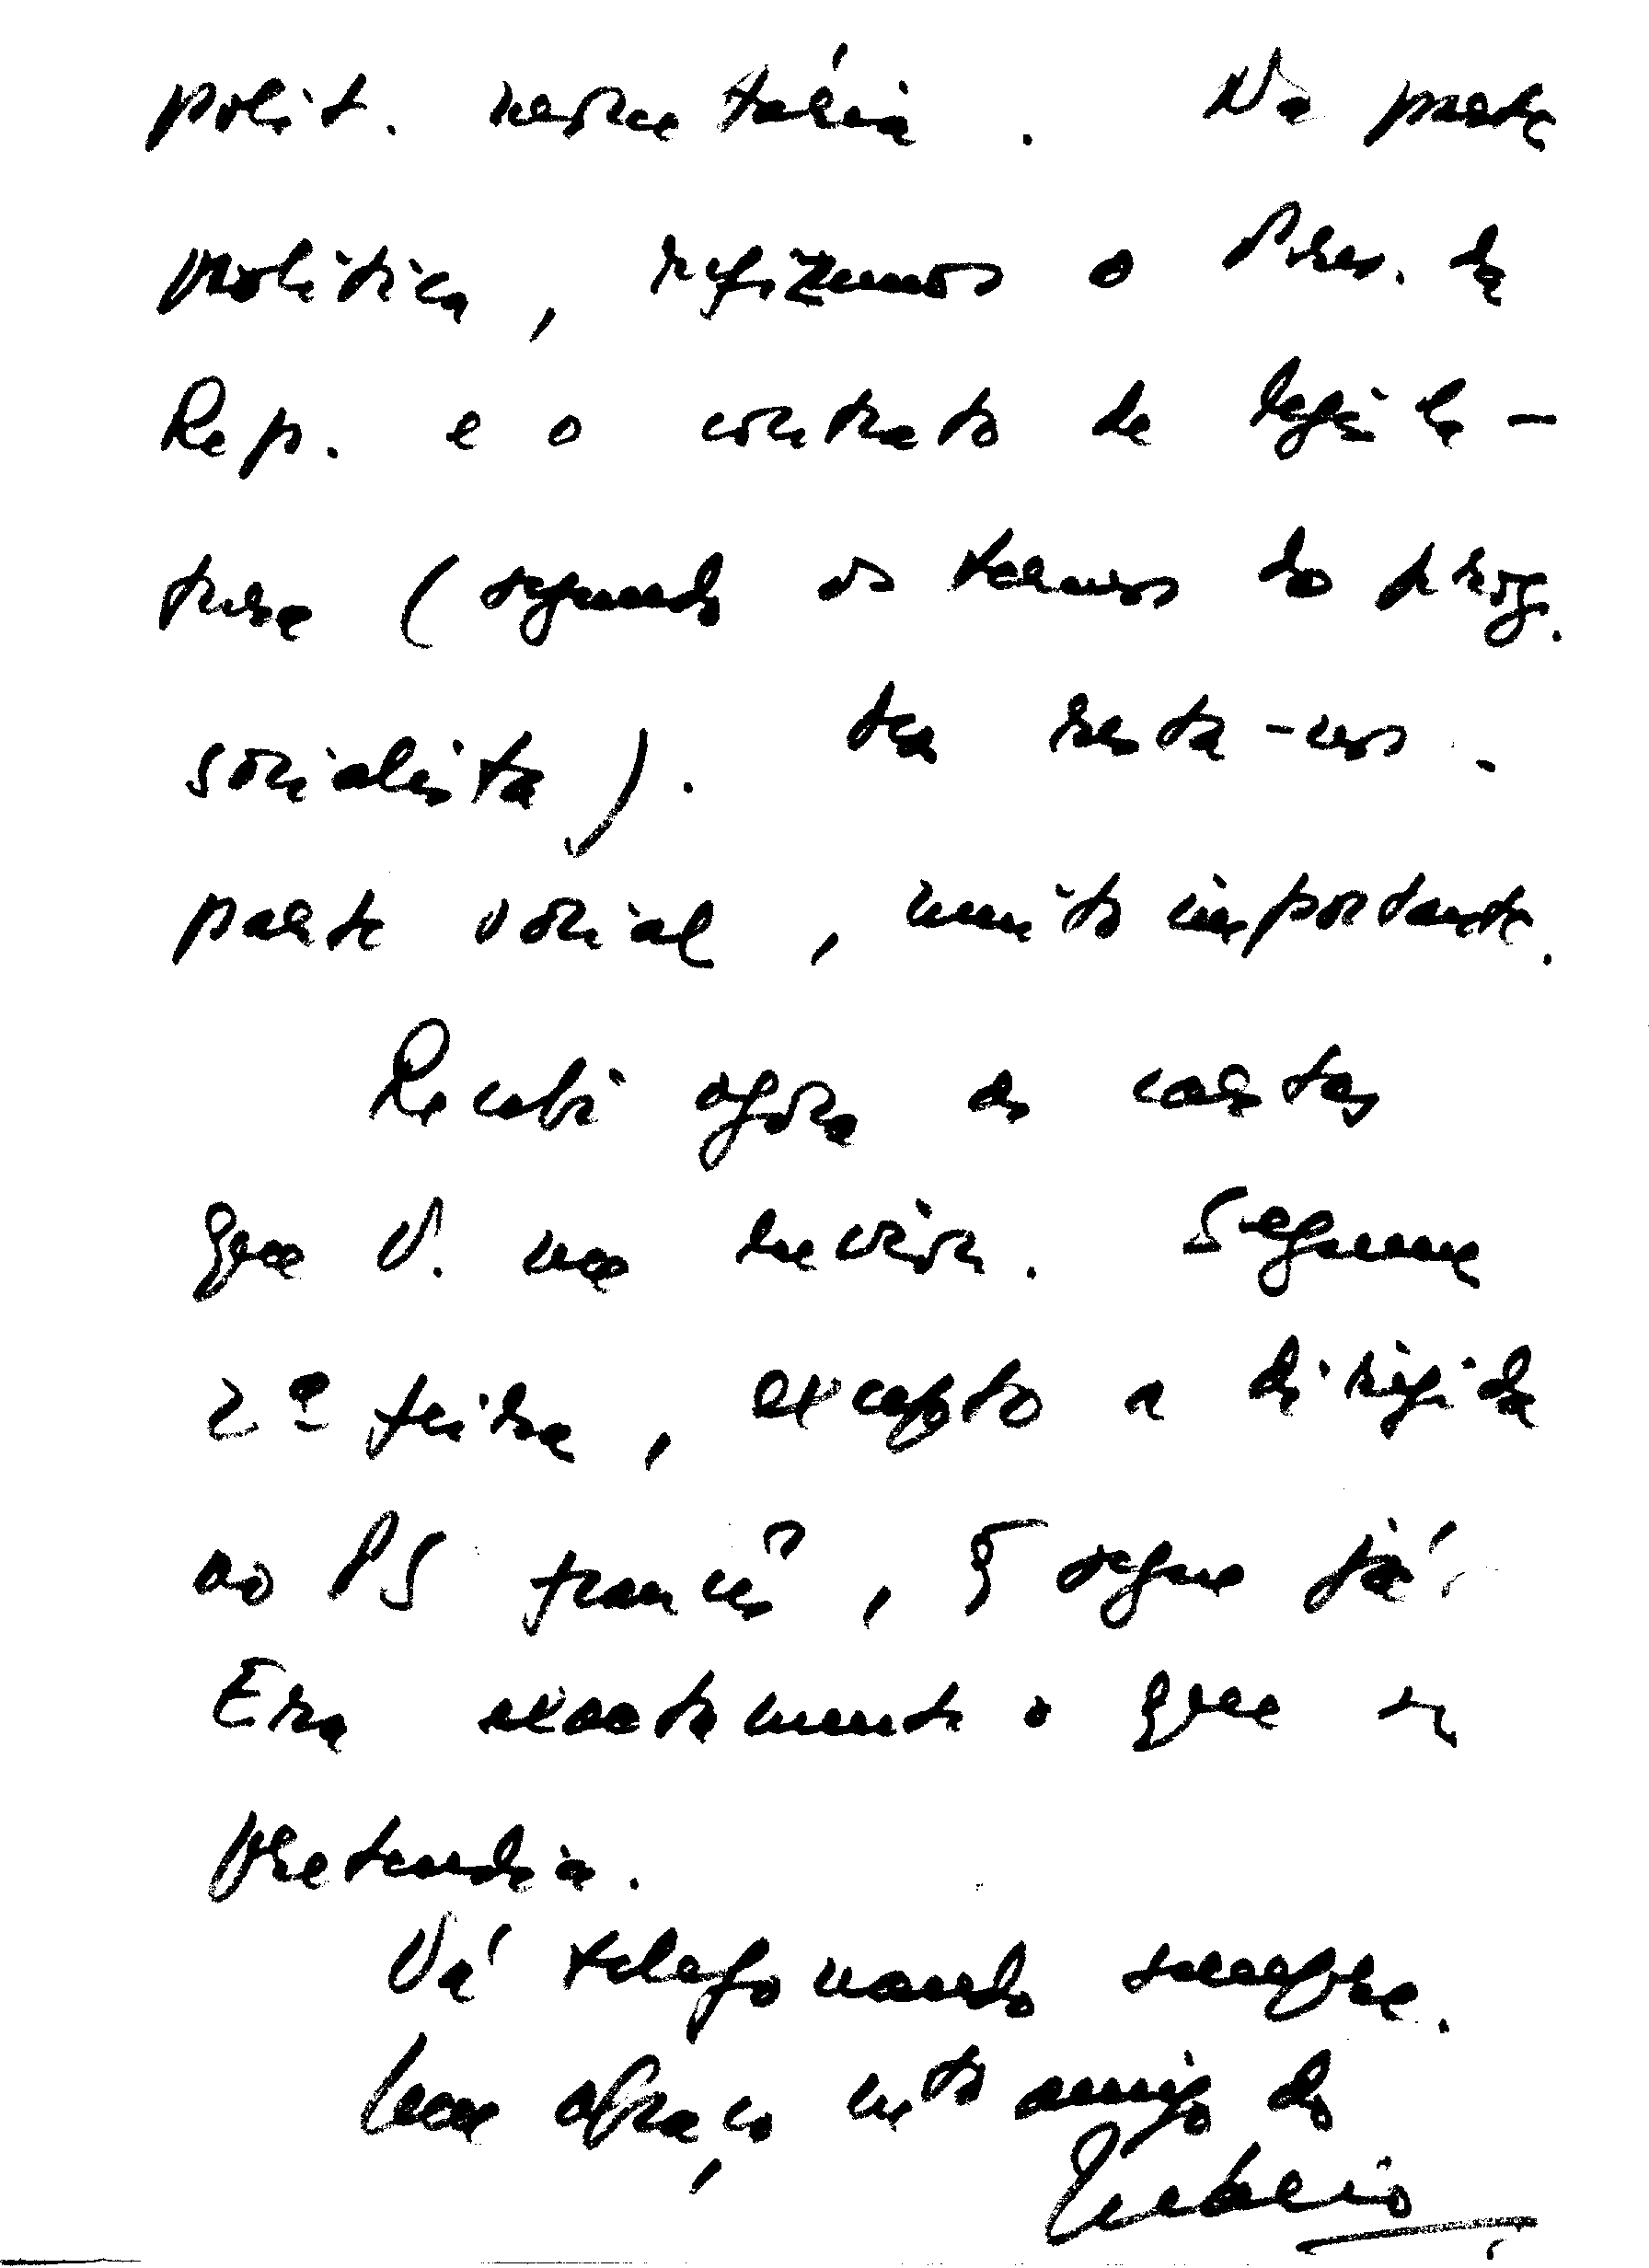 polit. monetária. Na parte
política, refizemos o Pres. da
Rep. e o contrato de legisla-
tura (segundo os termos do prog.
socialista). resta-nos
parte social, muito importante.
Recebi agora as cartas
que V. me enviou. Seguem
2ª feira, excepto a dirigida
ao PS francês, q segue já.
Era exactamente o que se
pretendia.
Vá telefonando sempre.
Um abraço mto amigo do